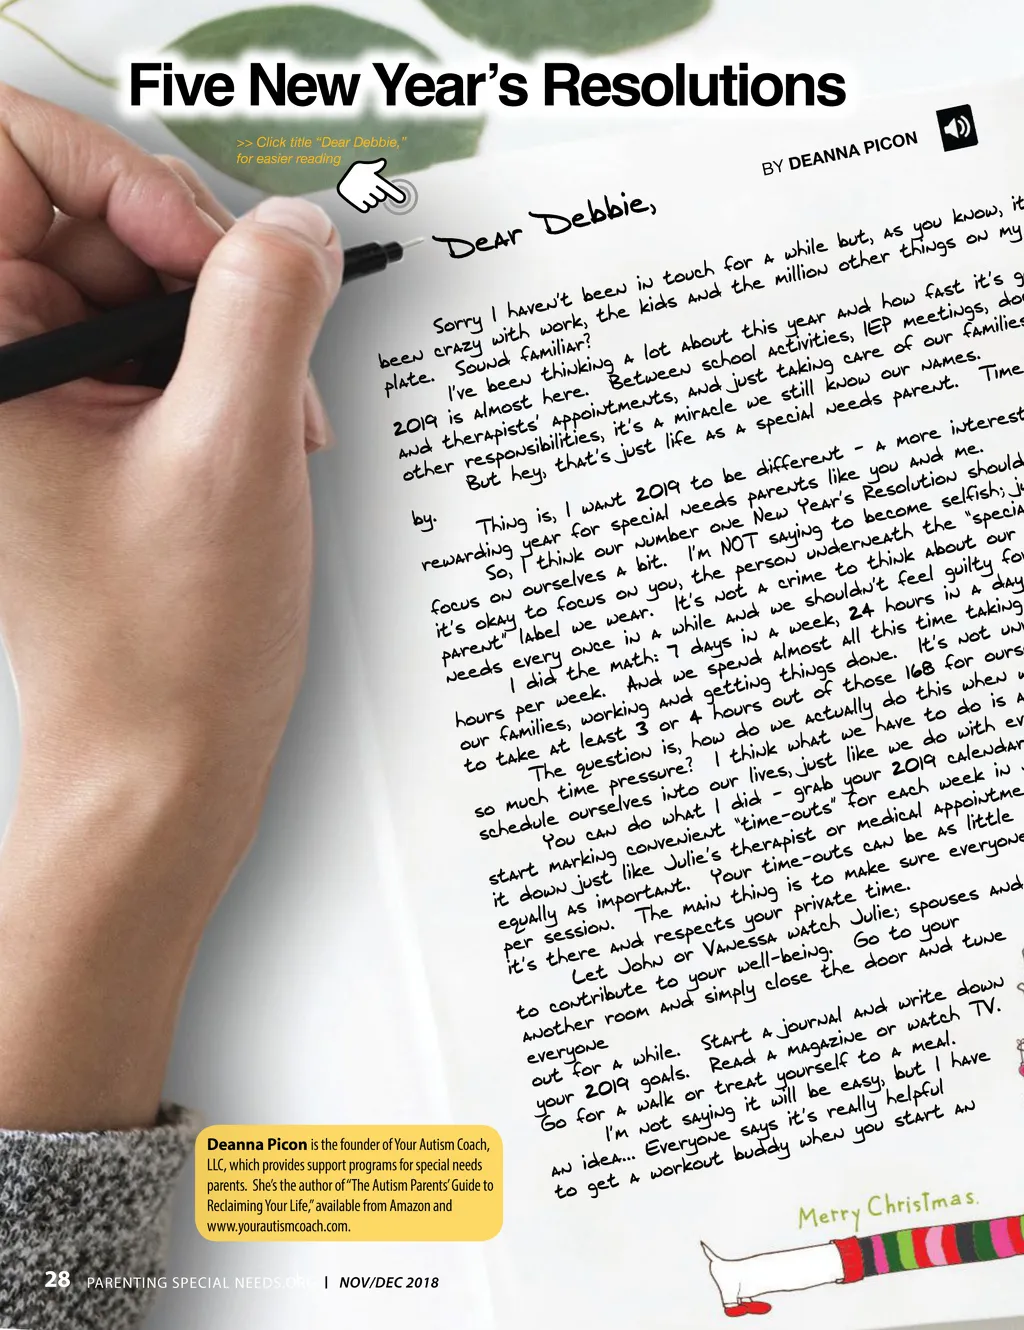 Five New Year's Resolutions
>> Click title "Dear Debbie,"
for easier reading
BY DEANNA PICON
Dear Debbie,
Sorry I haven't been in touch for a while but, as you know, it
been crazy with work, the kids and the million other things on my
plate. Sound familiar?
I've been thinking a lot about this year and how fast it's g
2019 is almost here. Between school activities, IEP meetings, do
and therapists' appointments, and just taking care of our families
other responsibilities, it's a miracle we still know our names.
But hey, that's just life as a special needs parent. Time
by.
Thing is, I want 2019 to be different - a more interest
rewarding year for special needs parents like you and me.
So, I think our number one New Year's Resolution should
focus on ourselves a bit. I'm NOT saying to become selfish; ju
it's okay to focus on you, the person underneath the "specia
parent" label we wear. It's not a crime to think about our
needs every once in a while and we shouldn't feel guilty for
I did the math: 7 days in a week, 24 hours in a day
hours per week. And we spend almost all this time taking
our families, working and getting things done. It's not un
to take at least 3 or 4 hours out of those 168 for ourse
The question is, how do we actually do this when w
so much time pressure? I think what we have to do is a
schedule ourselves into our lives, just like we do with ev
You can do what I did - grab your 2019 calendar
start marking convenient "time-outs" for each week in
it down just like Julie's therapist or medical appointme
equally as important. Your time-outs can be as little
per session. The main thing is to make sure everyone
it's there and respects your private time.
Let John or Vanessa watch Julie; spouses and
to contribute to your well-being. Go to your
another room and simply close the door and tune
everyone
out for a while. Start a journal and write down
your 2019 goals. Read a magazine or watch TV.
Go for a walk or treat yourself to a meal.
I'm not saying it will be easy, but I have
an idea... Everyone says it's really helpful
to get a workout buddy when you start an
Deanna Picon is the founder of Your Autism Coach,
LLC, which provides support programs for special needs
parents. She's the author of "The Autism Parents' Guide to
Reclaiming Your Life," available from Amazon and
www.yourautismcoach.com.
Merry Christmas.
28 PARENTING SPECIAL NEEDS.ORG | NOV/DEC 2018